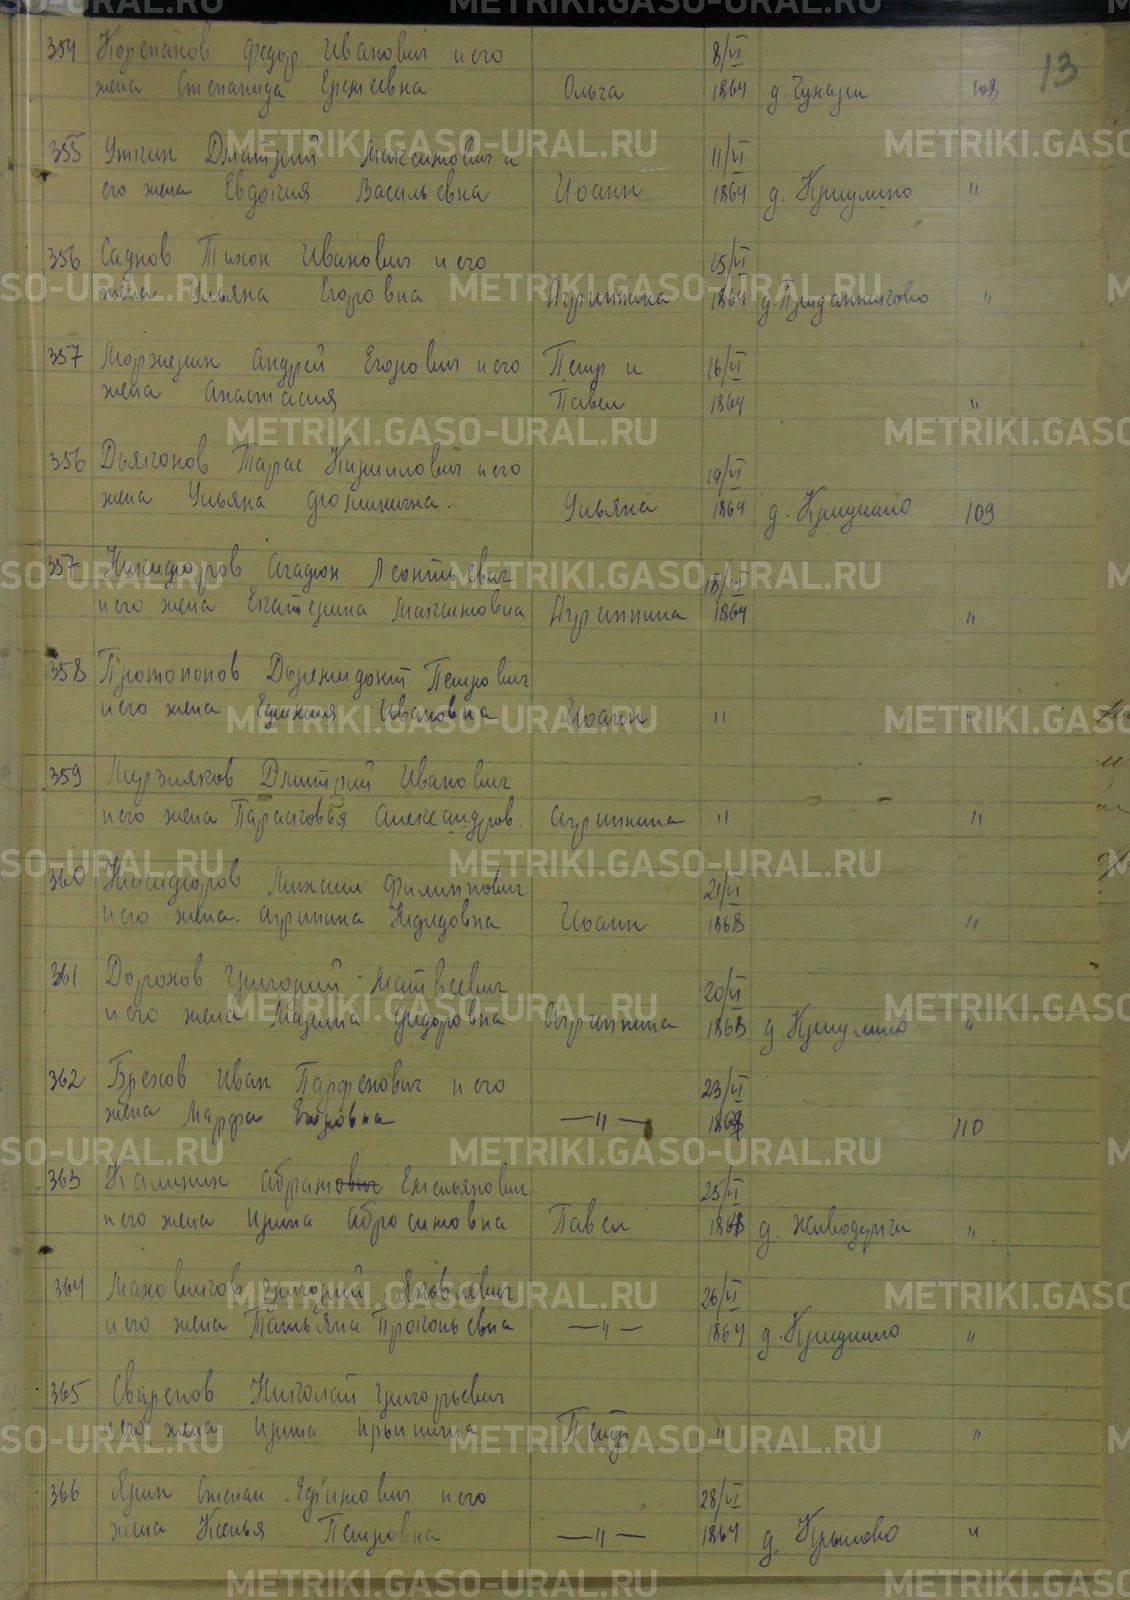 13
354 Корепанов Федор Иванович и его 8/VI
жена Степанида Ергеевна Ольга 1864 д. 108
355 Уткин Дмитрий Максимович и 11/VI
его жена Евдокия Васильевна Иоанн 1864 д. Криулино "
356 Садков Тихон Иванович и его 15/VI
жена Ульяна Егоровна Агриппина 1864 д. Приданниково "
357 Моржерин Андрей Егорович и его Петр и 16/VI
жена Анастасия Павел 1864 "
356 Дьяконов Тарас Кириллович и его 19/VI
жена Ульяна Фоминична. Ульяна 1864 д. Криулино 109
357 Никифоров Агафон Леонтьевич 18/VI
и его жена Екатерина Максимовна Агриппина 1864 "
358 Протопопов Дормидонт Петрович
и его жена Ефимия Ивановна Иоанн " "
359 Мурзиляков Дмитрий Иванович
и его жена Парасковья Александров. Агриппина " "
360 Никифоров Михаил Филиппович 21/VI
и его жена. Агрипина Нефедовна Иоанн 1868 "
361 Дорохов Григорий Матвеевич 20/VI
и его жена Марина Федоровна Агриппина 1868 д. Криулино "
362 Брехов Иван Парфенович и его 23/VI
жена Марфа Егоровна —"— 110
363 Калинин Абрам Емельянович 25/VI
и его жена Ирина Абросимовна Павел д. Живодерки "
364 Маховиков Григорий Яковлевич 26/VI
и его жена Татьяна Прокопьевна —"— 1864 д. Криулино "
365 Свиренов Николай Григорьевич
и его жена Ирина Петр " "
366 Ярин Степан Ефимович и его 28/VI
жена Ксенья Петровна —"— 1864 д. Крылово "
METRIKI.GASO-URAL.RU